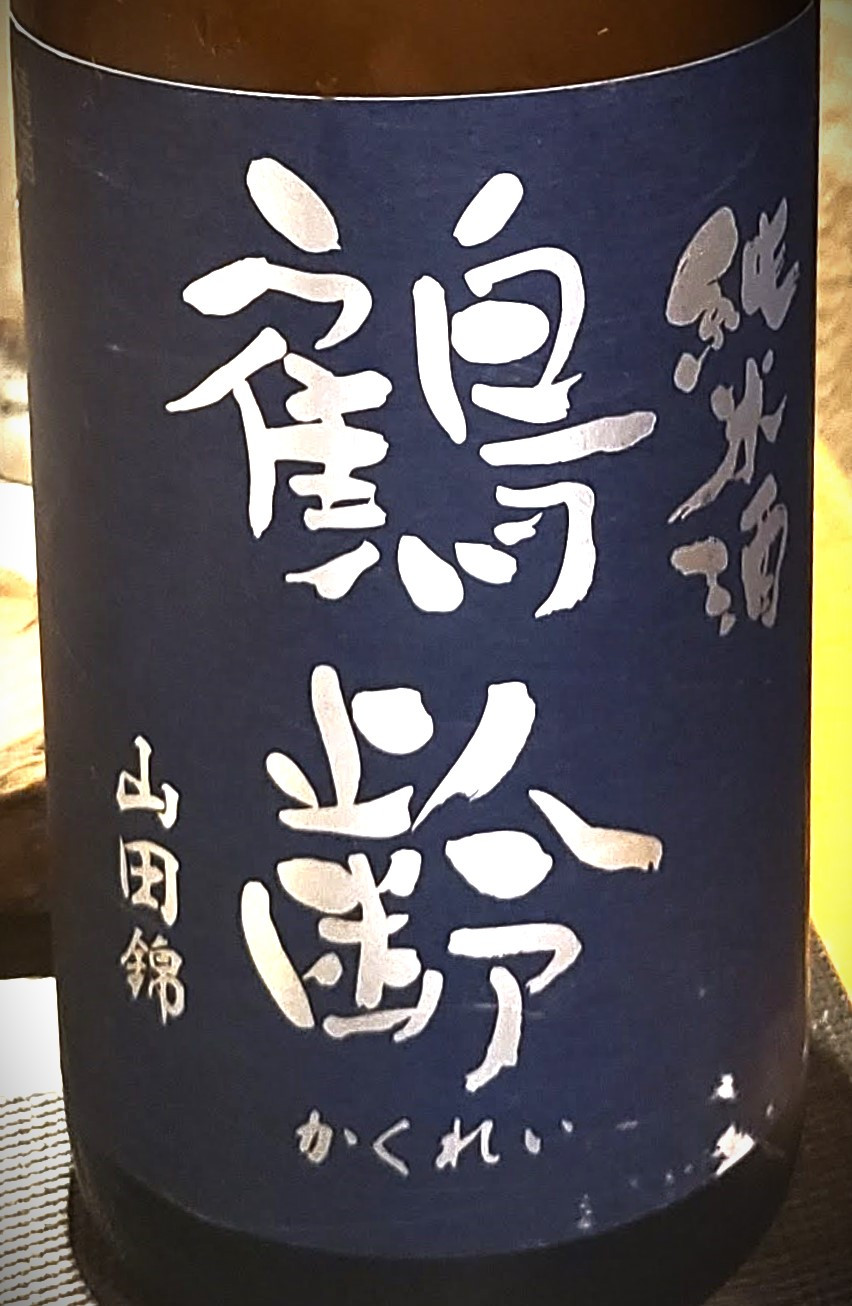 純米酒
鶴齢
かくれい
山田錦